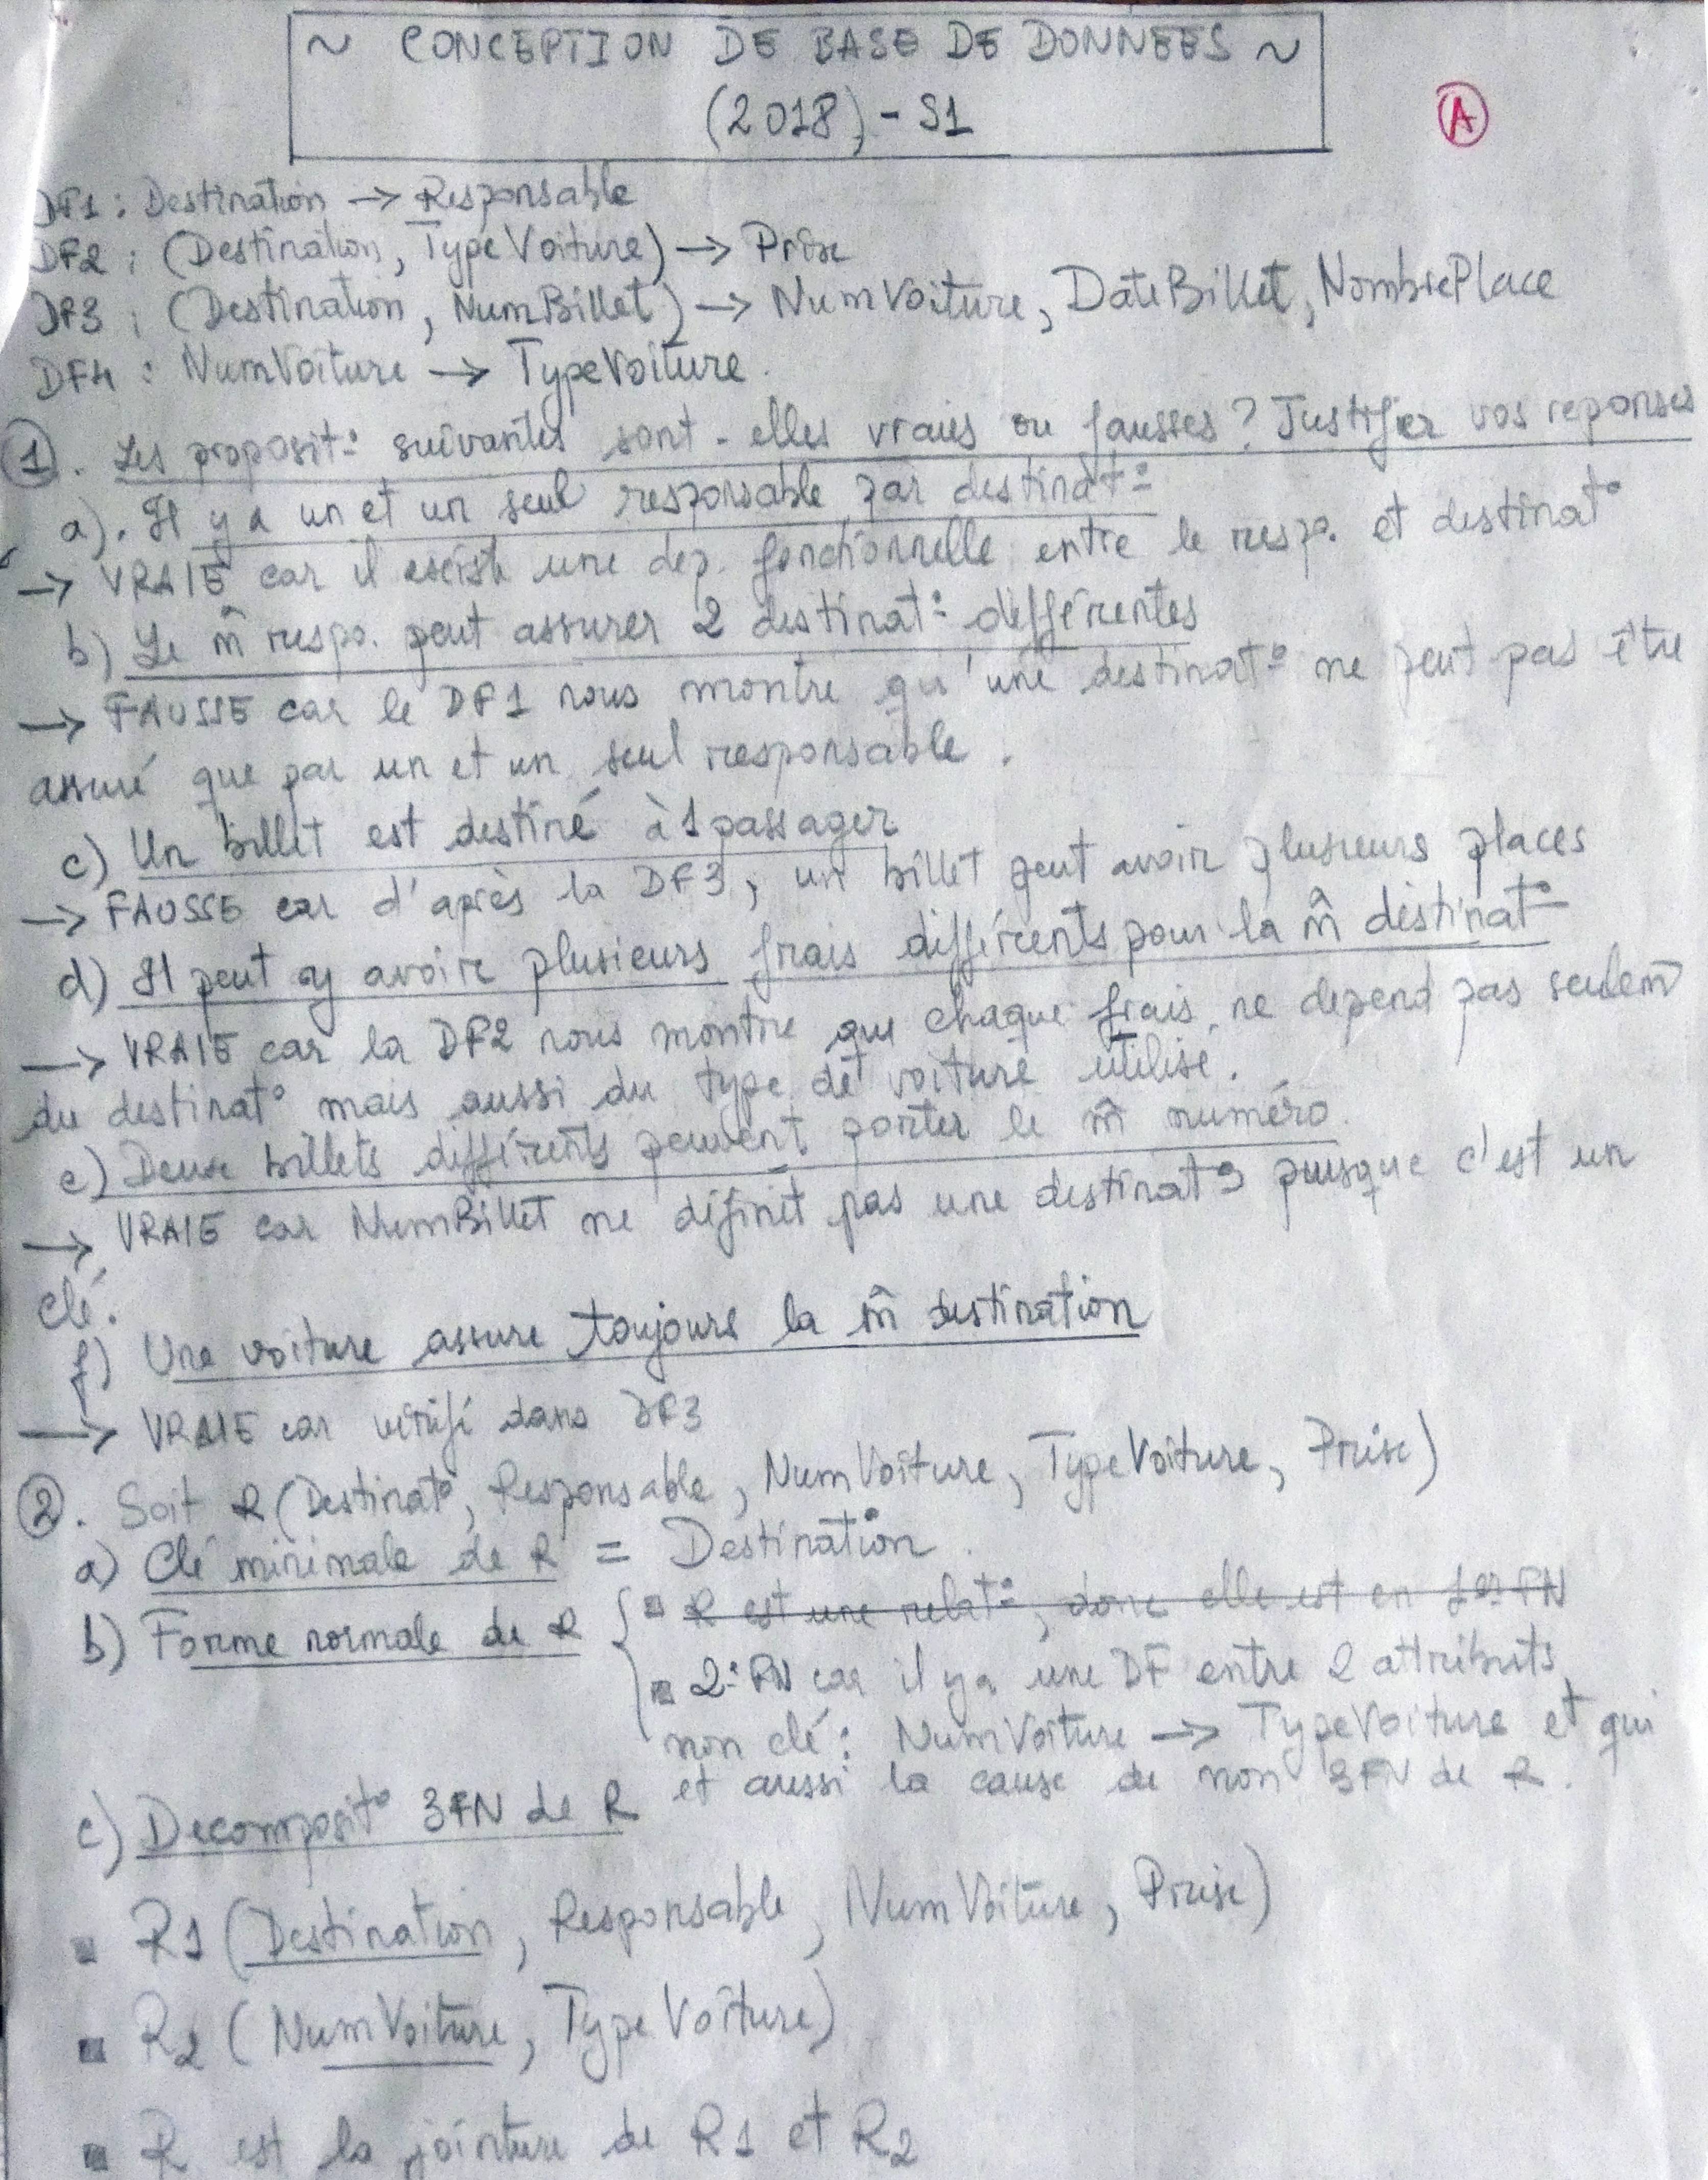 ~ CONCEPTION DE BASE DE DONNEES ~
(2018) - S1
A
DF1 : Destination → Responsable
DF2 : (Destination, TypeVoiture) → Prix
DF3 : (Destination, NumBillet) → NumVoiture, DateBillet, NombrePlace
DF4 : NumVoiture → TypeVoiture.
①. Les proposit° suivantes sont-elles vraies ou fausses ? Justifier vos reponses
a). Il y a un et un seul responsable par destinat°
→ VRAIE car il existe une dep. fonctionnelle entre le resp. et destinat°
b) Le m̂ respo. peut assurer 2 destinat° différentes
→ FAUSSE car le DF1 nous montre qu'une destinat° ne peut pas être
assuré que par un et un seul responsable.
c) Un billet est destiné à 1 passager
→ FAUSSE car d'après la DF3, un billet peut avoir plusieurs places
d) Il peut y avoir plusieurs frais différents pour la m̂ destinat°
→ VRAIE car la DF2 nous montre que chaque frais ne depend pas seulem̂
du destinat° mais aussi du type de voiture utilisé.
e) Deux billets différents peuvent porter le m̂ numéro.
→ VRAIE car NumBillet ne définit pas une destinat° puisque c'est un
clé.
f) Une voiture assure toujours la m̂ destination
→ VRAIE car vérifé dans DF3
②. Soit R (Destinat°, Responsable, NumVoiture, TypeVoiture, Prix)
a) Clé minimale de R = Destination.
b) Forme normale de R { ▪ R est une relat°, donc elle est en 1er FN
▪ 2° FN car il y a une DF entre 2 attributs
non clé : NumVoiture → TypeVoiture et qui
et aussi la cause de non 3FN de R.
c) Decomposit° 3FN de R
▪ R1 (Destination, Responsable, NumVoiture, Prix)
▪ R2 (NumVoiture, TypeVoiture)
▪ R est la jointure de R1 et R2